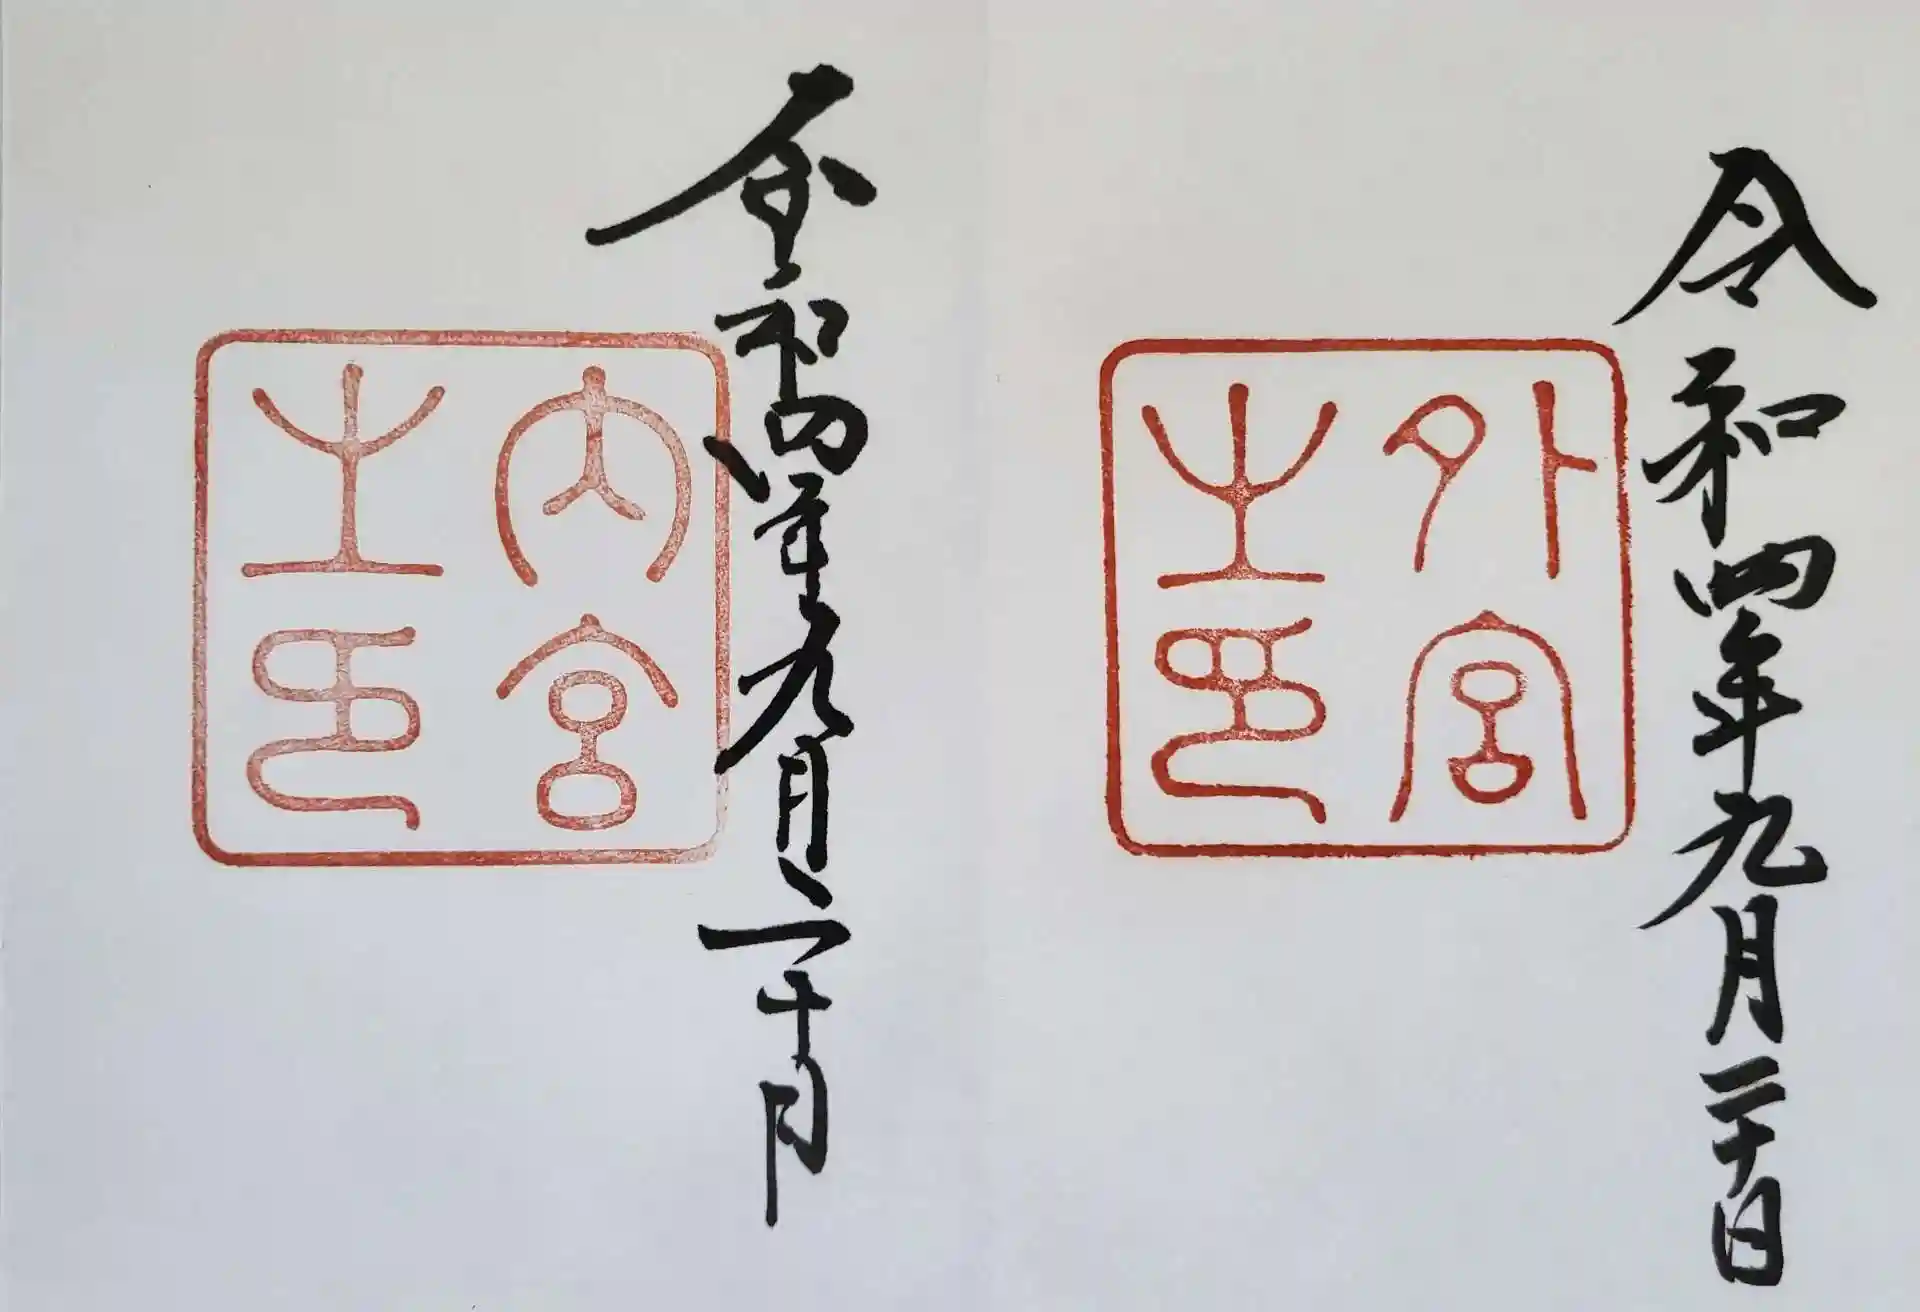 令和四年九月二十日
外宮
之印
令和四年九月二十日
内宮
之印